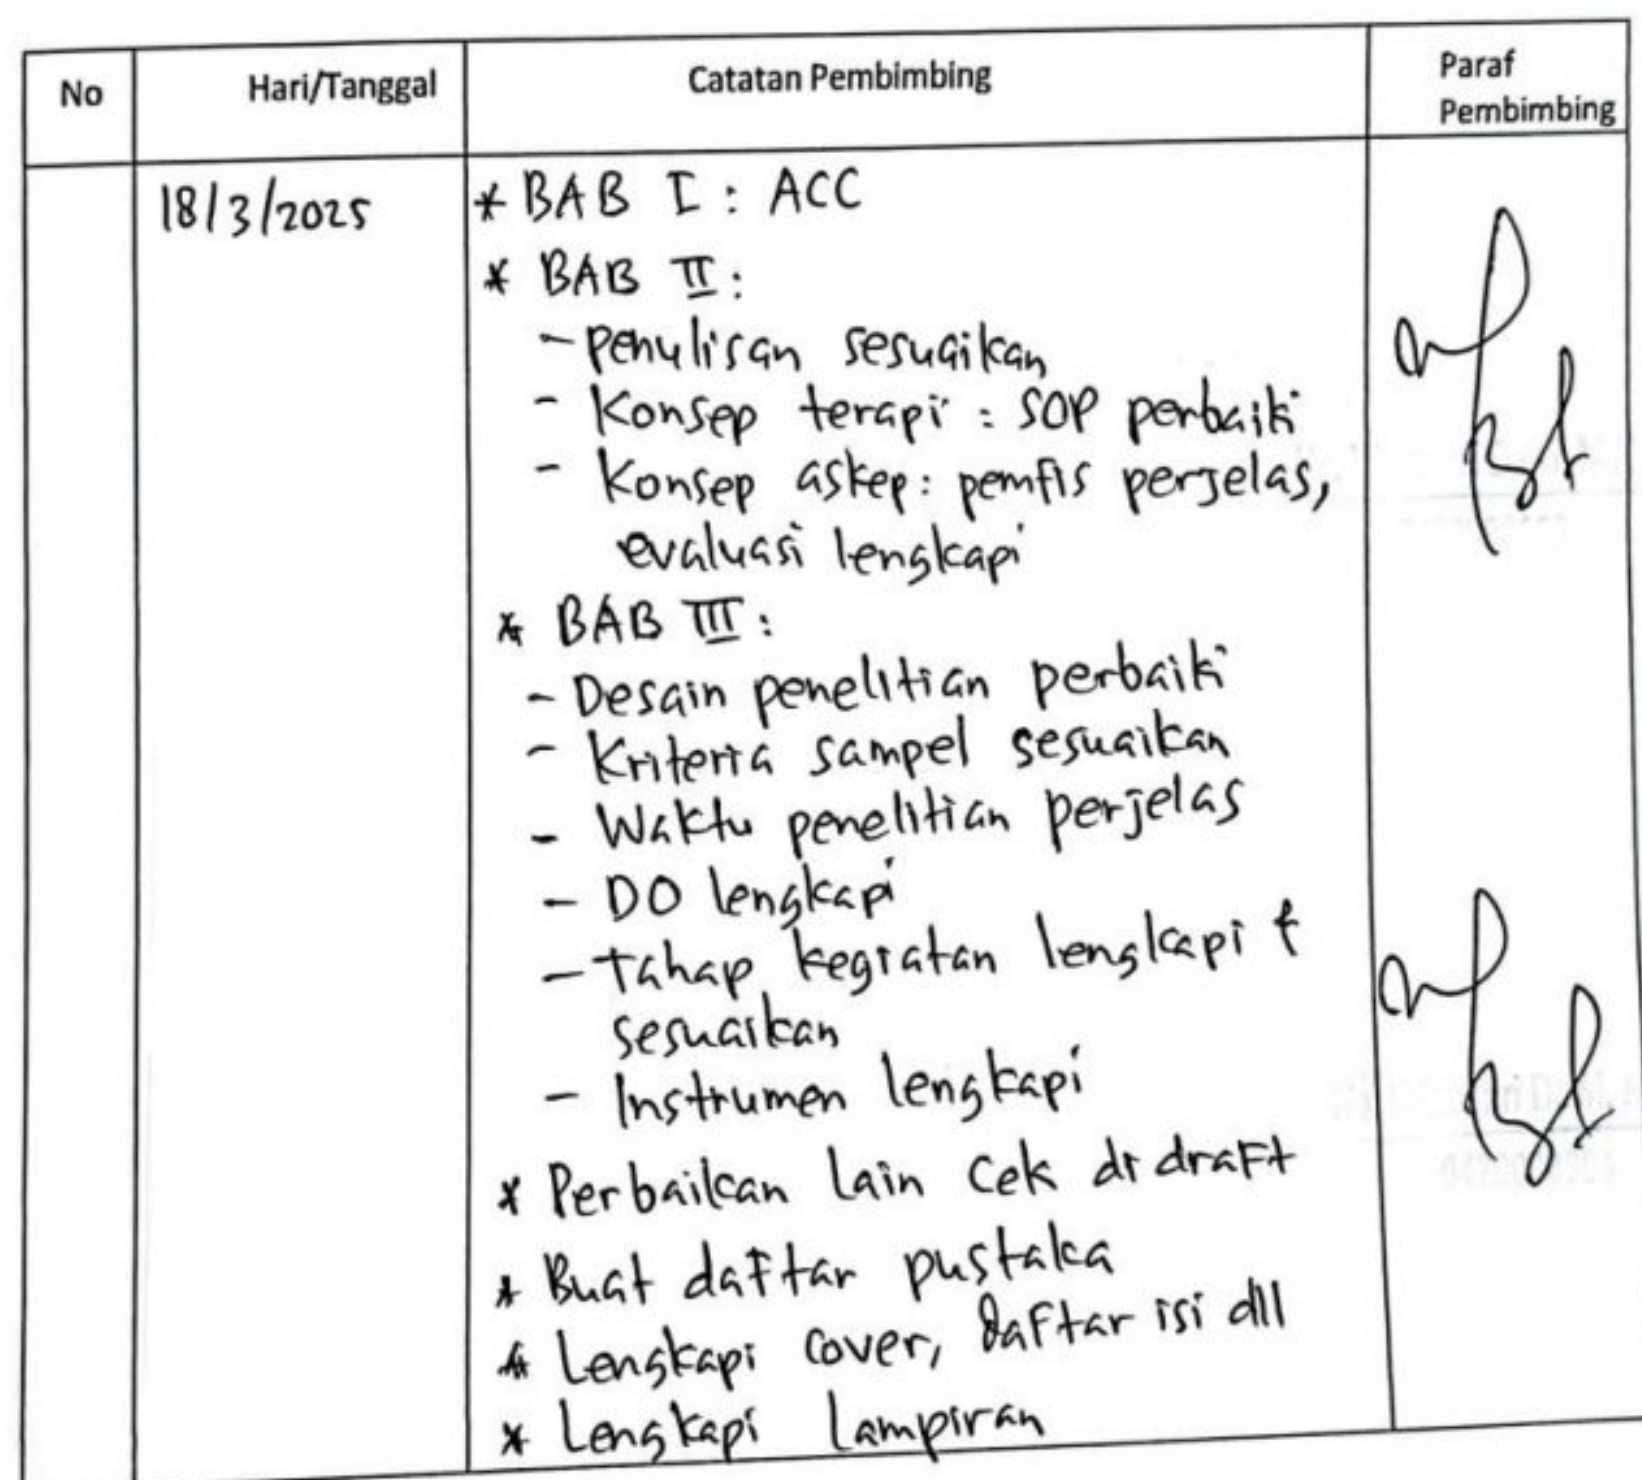 No Hari/Tanggal Catatan Pembimbing Paraf
Pembimbing
18/3/2025 * BAB I : ACC
* BAB II :
- penulisan sesuaikan
- Konsep terapi : SOP perbaiki
- Konsep askep : pemfis perjelas,
evaluasi lengkapi
* BAB III :
- Desain penelitian perbaiki
- Kriteria sampel sesuaikan
- Waktu penelitian perjelas
- DO lengkapi
- Tahap kegiatan lengkapi &
sesuaikan
- Instrumen lengkapi
* Perbaikan lain cek di draft
* Buat daftar pustaka
* Lengkapi cover, daftar isi dll
* Lengkapi lampiran